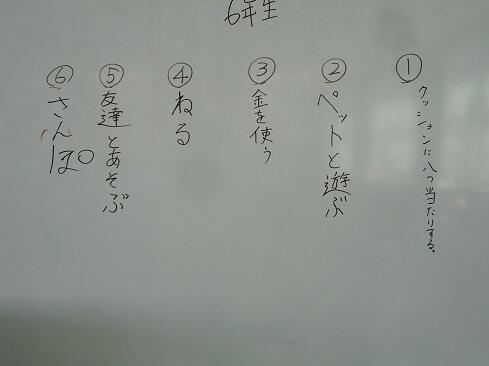 6年生
① クッションに八つ当たりする。
② ペットと遊ぶ
③ 金を使う
④ ねる
⑤ 友達とあそぶ
⑥ さんぽ